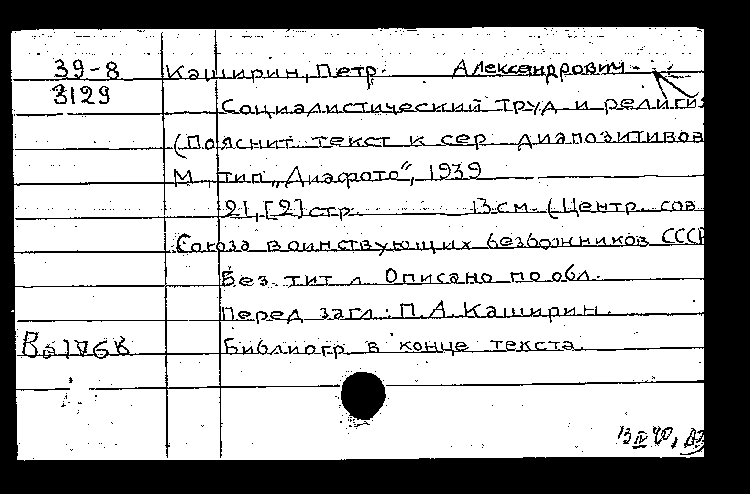 39-8 Каширин, Петр Александрович
3129 Социалистический труд и религия
(Пояснит. текст к сер. диапозитивов
М., тип. „Диафото", 1939
21, [2] стр. 13 см. (Центр. сов.
Союза воинствующих безбожников СССР
Без тит. л. Описано по обл.
Перед загл.: П.А. Каширин.
Библиогр. в конце текста.